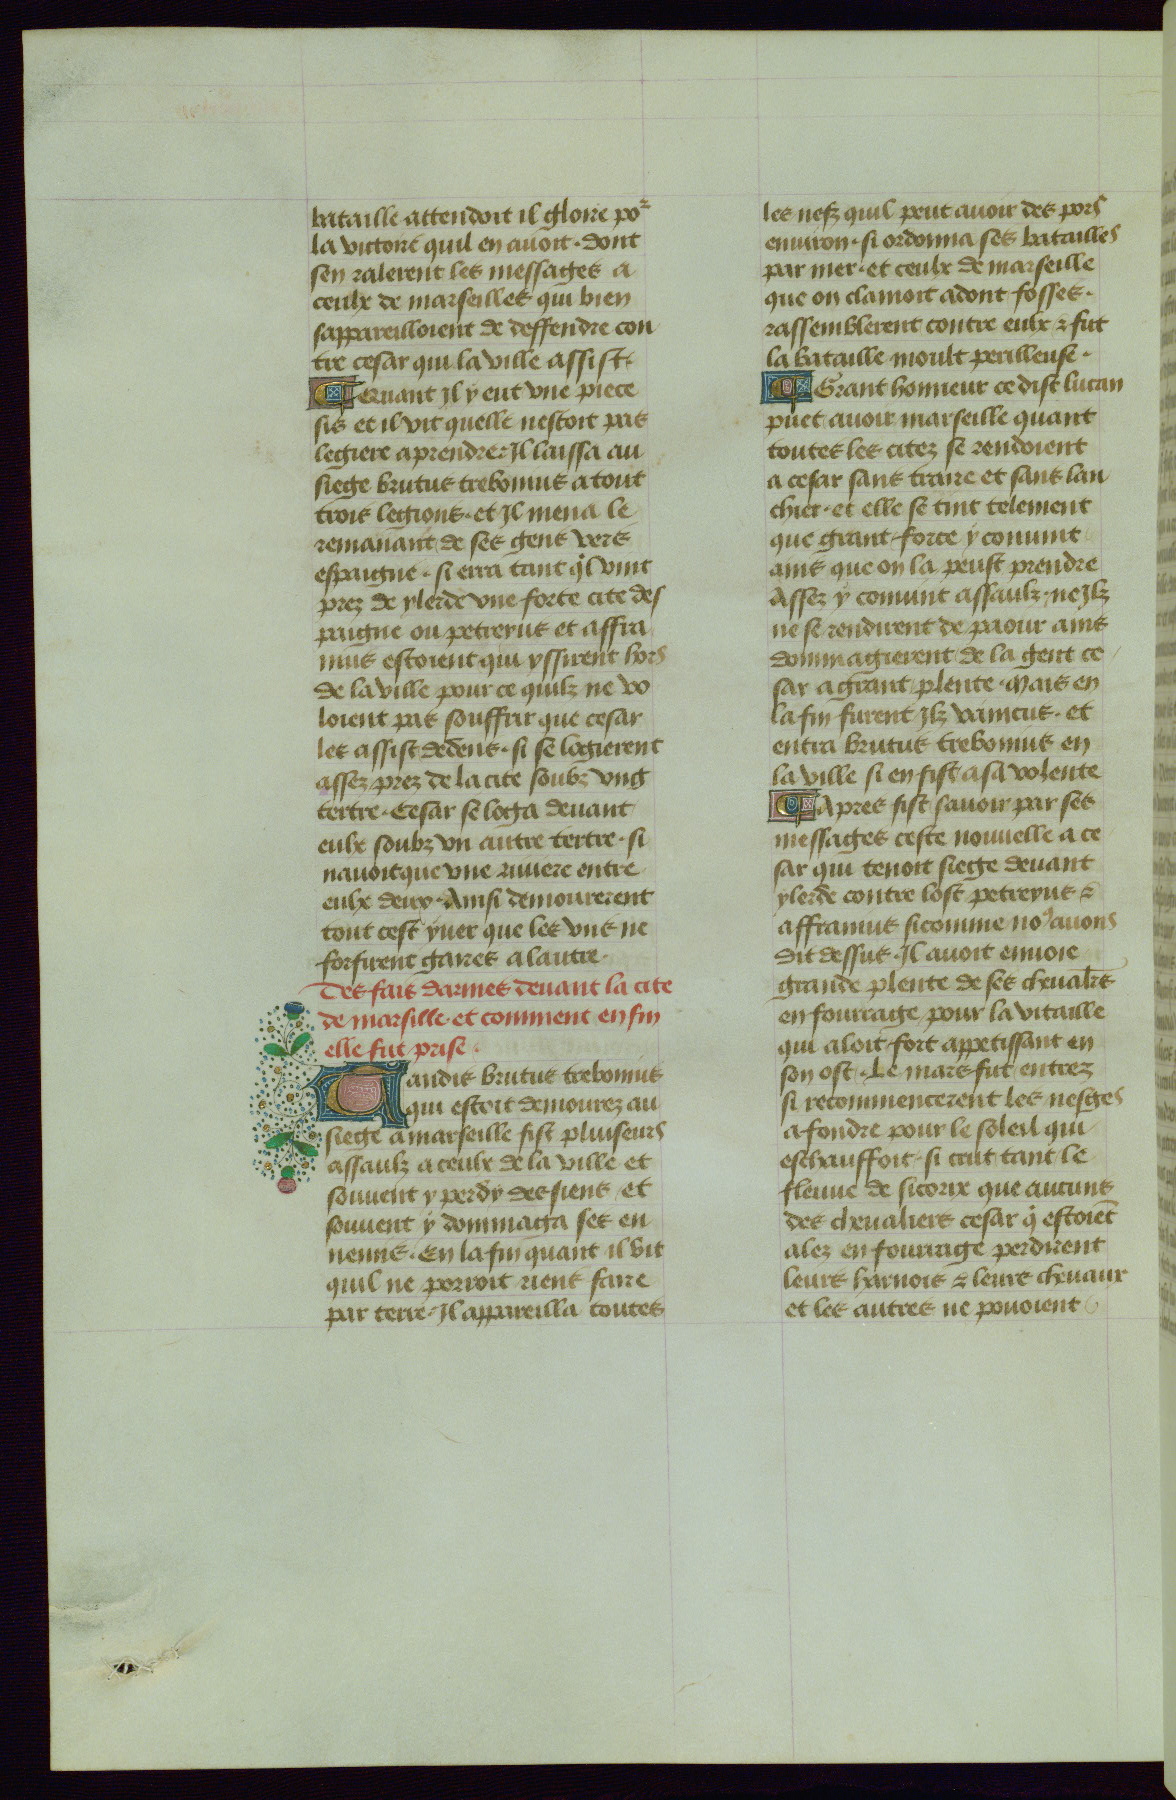 bataille attendoit il gloire poʳ
la victore quil en auoit · dont
sen ralerent les messages a
ceulx de marseilles qui bien
sappareilloient de deffendre con
tre cesar qui la ville assist ·
Quant Il y eut vne piece
sis et il vit quelle nestoit pas
legiere aprendre Il laissa au
siege brutus trebonius atout
trois legions · et Il mena le
remanant de ses gens vers
espaigne · si erra tant ql vint
prez de ylerde vne forte cite des
paigne ou petreyus et affra
nius estoient qui yssirent hors
de la ville pour ce quilz ne vo
loient pas souffrir que cesar
les assist dedens · si se logierent
assez prez de la cite soubz vng
tertre · Cesar se loga deuant
eulx soubz vn autre tertre · si
nauoit que vne riuiere entre
eulx deux · Ainsi demourerent
tout cest yuer que les vns ne
forfirent gaires a lautre ·
Des fais darmes deuant la cite
de marsille · et comment en fin
elle fut prise ·
Tandis brutus trebonius
qui estoit demourez au
siege a marseille fist pluiseurs
assaulz a ceulx de la ville et
souuent y perdy des siens / et
souuent y dommaga ses en
nemis · En la fin quant il vit
quil ne porroit riens faire
par terre · Il appareilla toutes
les nefz quil peut auoir des pors
enuiron · si ordonna ses batailles
par mer · et ceulx de marseille
que on clamoit adont fosses ·
rassemblerent contre eulx & fut
la bataille moult perilleuse ·
Grant honneur ce dist lucan
puet auoir marseille quant
toutes les citez se rendoient
a cesar sans traire et sans lan
chier · et elle se tint telement
que grant force y conuint
ains que on la peust prendre
Assez y conuint assaulz · ne Ilz
ne se rendirent de paour ains
dommagierent de la gent ce
sar a grant plente · Mais en
la fin furent Ilz vaincus · et
entra brutus trebonius en
la ville si en fist a sa volente
Apres fist sauoir par ses
messages ceste nouuelle a ce
sar qui tenoit siege deuant
ylerde contre lost petreyus &
affranius sicomme noꝰ auons
dit dessus · Il auoit enuoie
grande plente de ses cheualrs
en fourrage pour la vitaille
qui aloit fort appetissant en
son ost · Le mars fut entrez
si recommencerent les nesges
a fondre pour le soleil qui
eschauffoit · si crut tant le
fleuue de sicorix que aucuns
des cheualiers cesar q estoiēt
alez en fourrage perdirent
leurs harnois & leurs cheuaux
et les autres ne pouoient